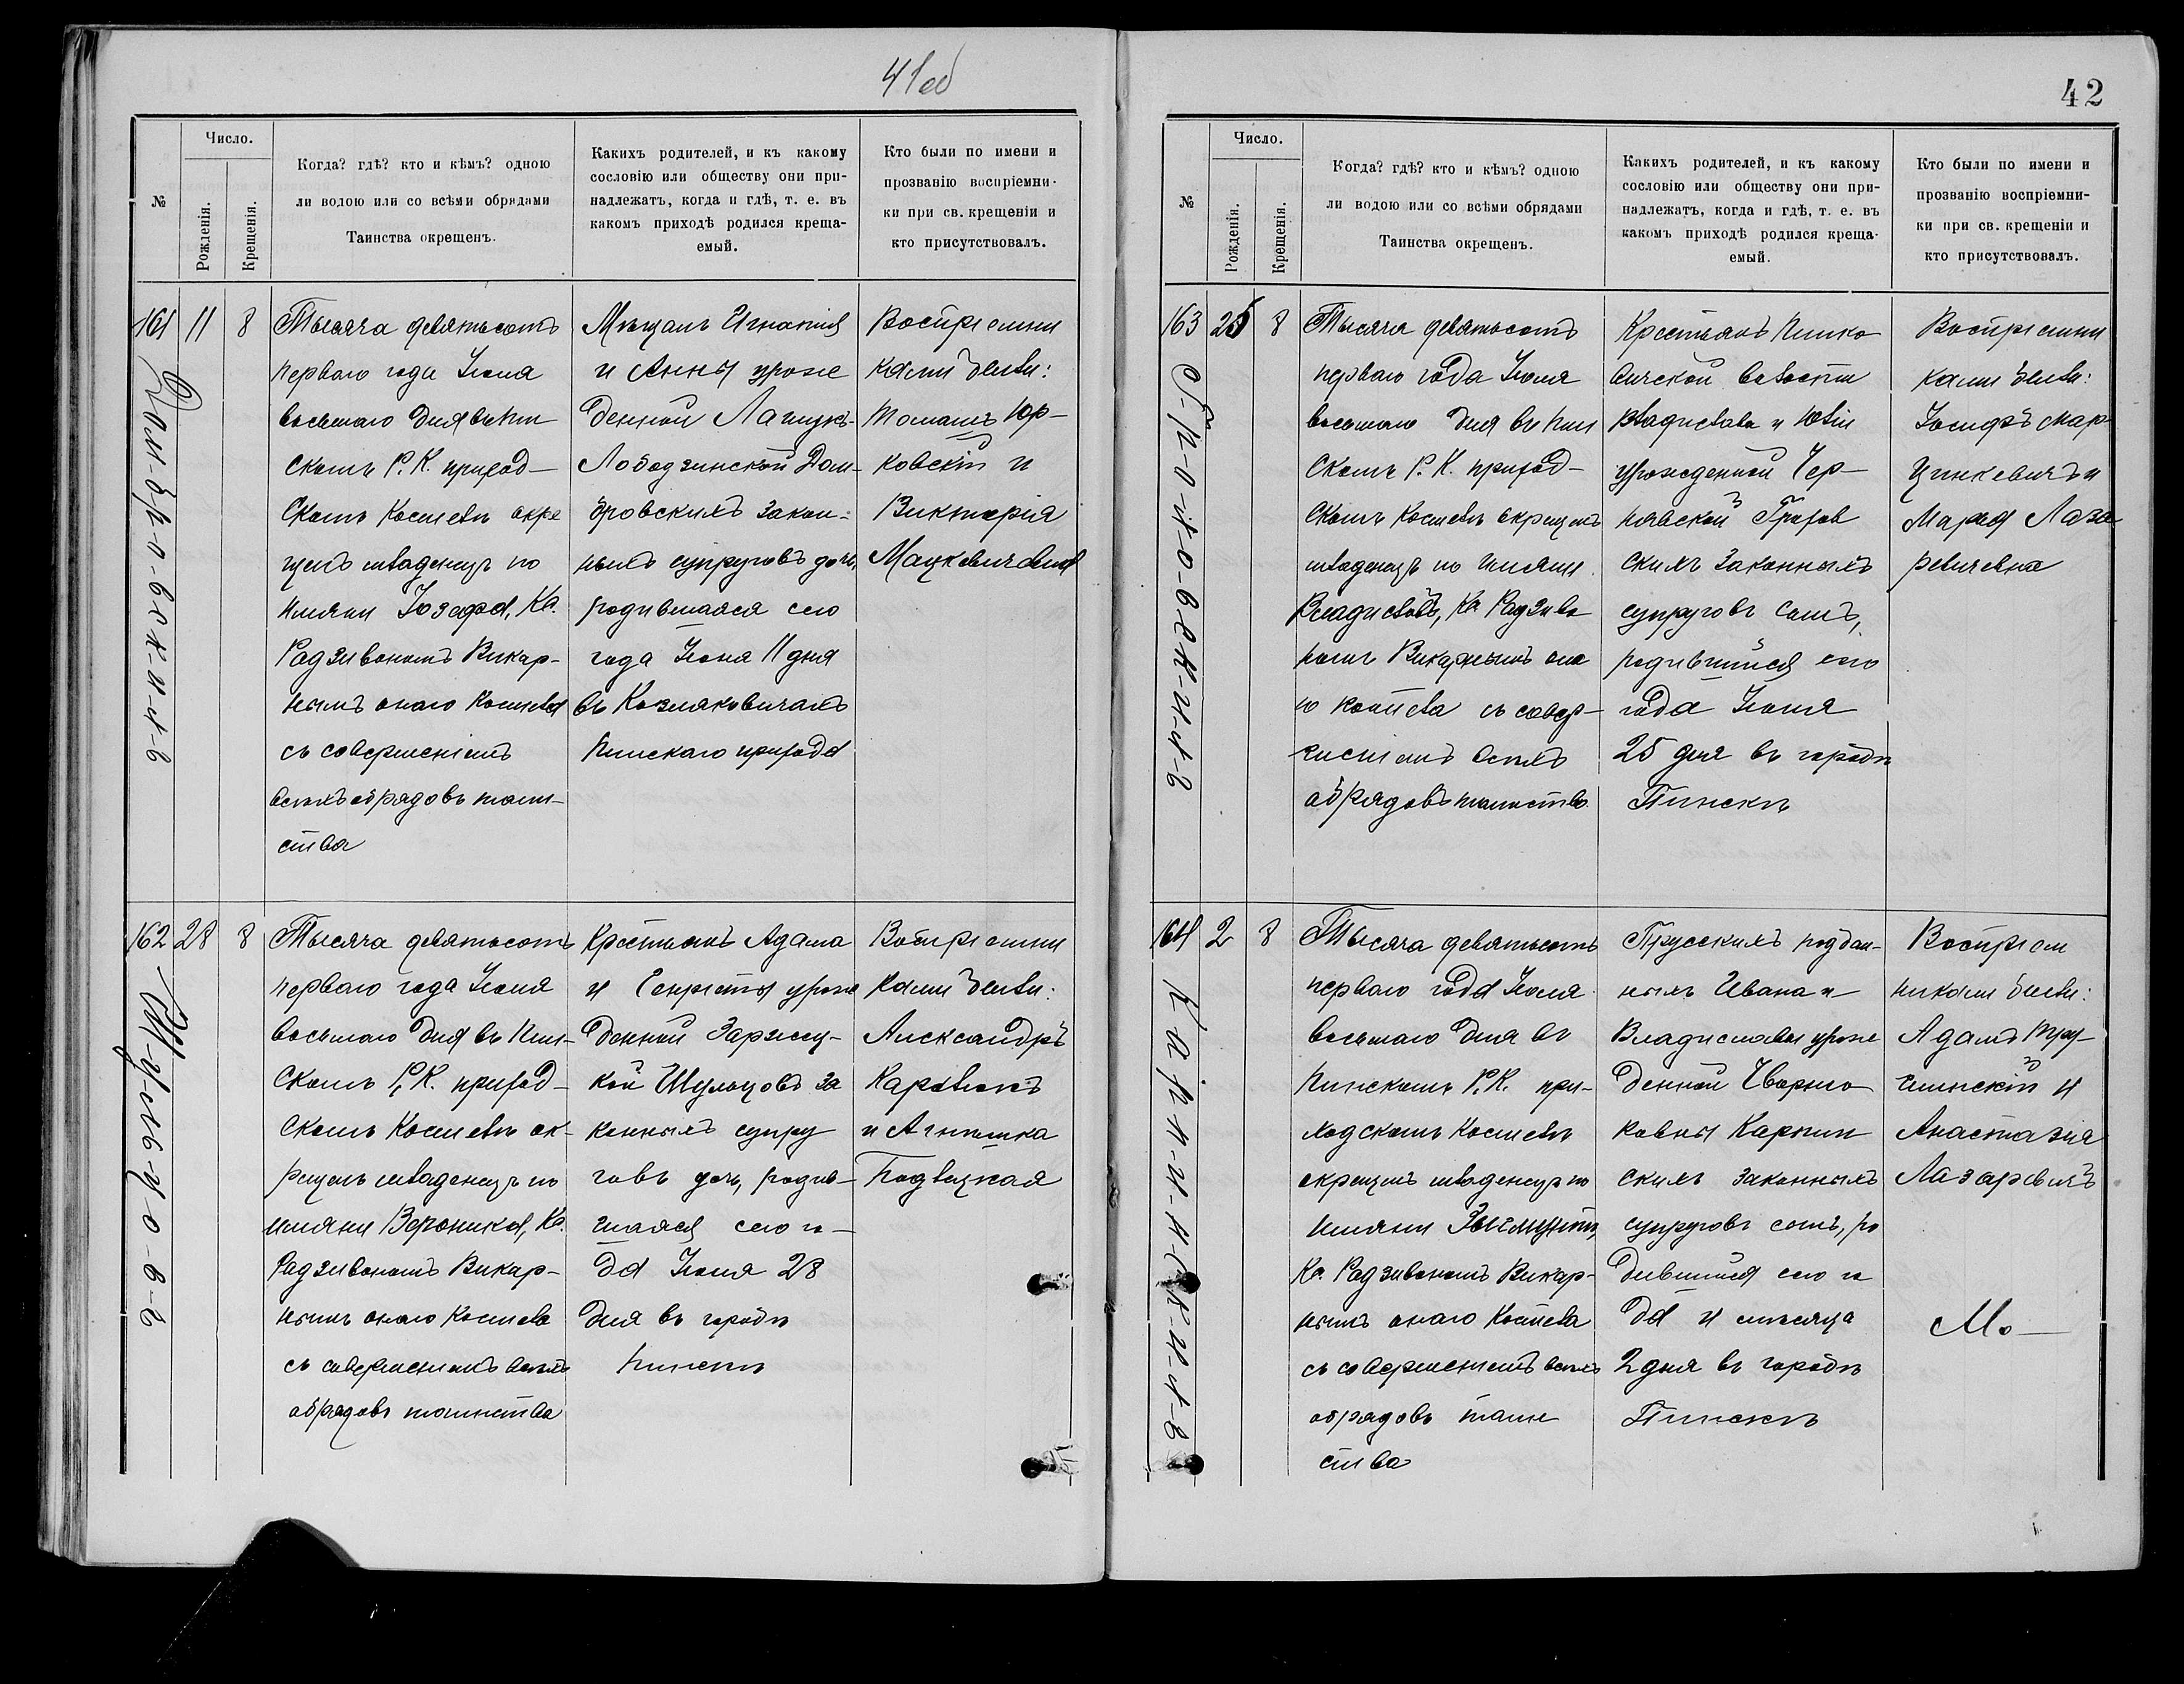 41об
№
Число.
Рожденія.
Крещенія.
Когда? гдѣ? кто и кѣмъ? одною
ли водою или со всѣми обрядами
Таинства окрещенъ.
Какихъ родителей, и къ какому
сословію или обществу они при-
надлежатъ, когда и гдѣ, т. е. въ
какомъ приходѣ родился креща-
емый.
Кто были по имени и
прозванію воспріемни-
ки при св. крещеніи и
кто присутствовалъ.
161
11
8
Домбровскихъ
Тысяча девятьсотъ
перваго года Іюля
восьмаго дня въ Пин
скомъ Р. К. приход-
скомъ костелѣ окре
щенъ младенецъ по
имяни Іозафа, Кс.
Радзивономъ Викар-
нымъ онаго костела
съ совершеніемъ
всѣхъ обрядовъ таин-
ства
Мѣщанъ Игнатія
и Анны урож
денной
Лободзинской Дом-
бровскихъ закон-
ныхъ супруговъ дочь,
родившаяся сего
года Іюня 11 дня
въ Козляковичахъ
Пинскаго прихода
Воспріемни
ками были:
Томашъ Юр-
ковскій и
Викторія
Мацкевичовна
162
28
8
Шульцовъ
Тысяча девятьсотъ
перваго года Іюля
восьмаго дня въ Пин-
скомъ Р. К. приход-
скомъ Костелѣ ок-
рещенъ младенецъ по
имяни Вероника, Кс.
Радзивономъ Викар-
нымъ онаго костела
съ совершеніемъ всѣхъ
обрядовъ таинства
Крестьянъ Адама
и Генрієты урож
денной
кой Шульцовъ за
конныхъ супру
говъ дочь, родив-
шаяся сего го-
да Іюня 28
дня въ городѣ
Пинскѣ
Воспріемни
ками были:
Александръ
и Агнѣшка
42
№
Число.
Рожденія.
Крещенія.
Когда? гдѣ? кто и кѣмъ? одною
ли водою или со всѣми обрядами
Таинства окрещенъ.
Какихъ родителей, и къ какому
сословію или обществу они при-
надлежатъ, когда и гдѣ, т. е. въ
какомъ приходѣ родился креща-
емый.
Кто были по имени и
прозванію воспріемни-
ки при св. крещеніи и
кто присутствовалъ.
163
25
8
Тысяча девятьсотъ
перваго года Іюля
восьмаго дня въ Пин
скомъ Р. К. приход-
скомъ Костелѣ окрещенъ
младенецъ по имяни
Владиславъ, Кс. Радзиво
номъ Викарнымъ она
го костела съ совер-
шеніемъ всѣхъ
обрядовъ таинства
Крестьянъ Пинко
вичской волости
Владислава и Юліи
урожденной Чер-
нявской
скихъ законныхъ
супруговъ сынъ,
родившійся сего
года Іюня
25 дня въ городѣ
Пинскѣ
Воспріемни
ками были:
Іосифъ Мар-
цинкевичъ и
Марія Лаза
ревичевна
164
2
8
Карпинскихъ
Тысяча девятьсотъ
перваго года Іюля
восьмаго дня въ
Пинскомъ Р. К. при-
ходскомъ костелѣ
окрещенъ младенецъ по
имяни
Кс. Радзивономъ Викар-
нымъ онаго Костела
съ совершеніемъ всѣхъ
обрядовъ таин
ства
Прусскихъ поддан-
ныхъ Ивана и
Владиславы урож
денной
Карпин
скихъ законныхъ
супруговъ сынъ, ро
дившійся сего го
да и мѣсяца
2 дня въ городѣ
Пинскѣ
Воспріем
никами были:
Адамъ
и
Анастазія
Лазаревичъ